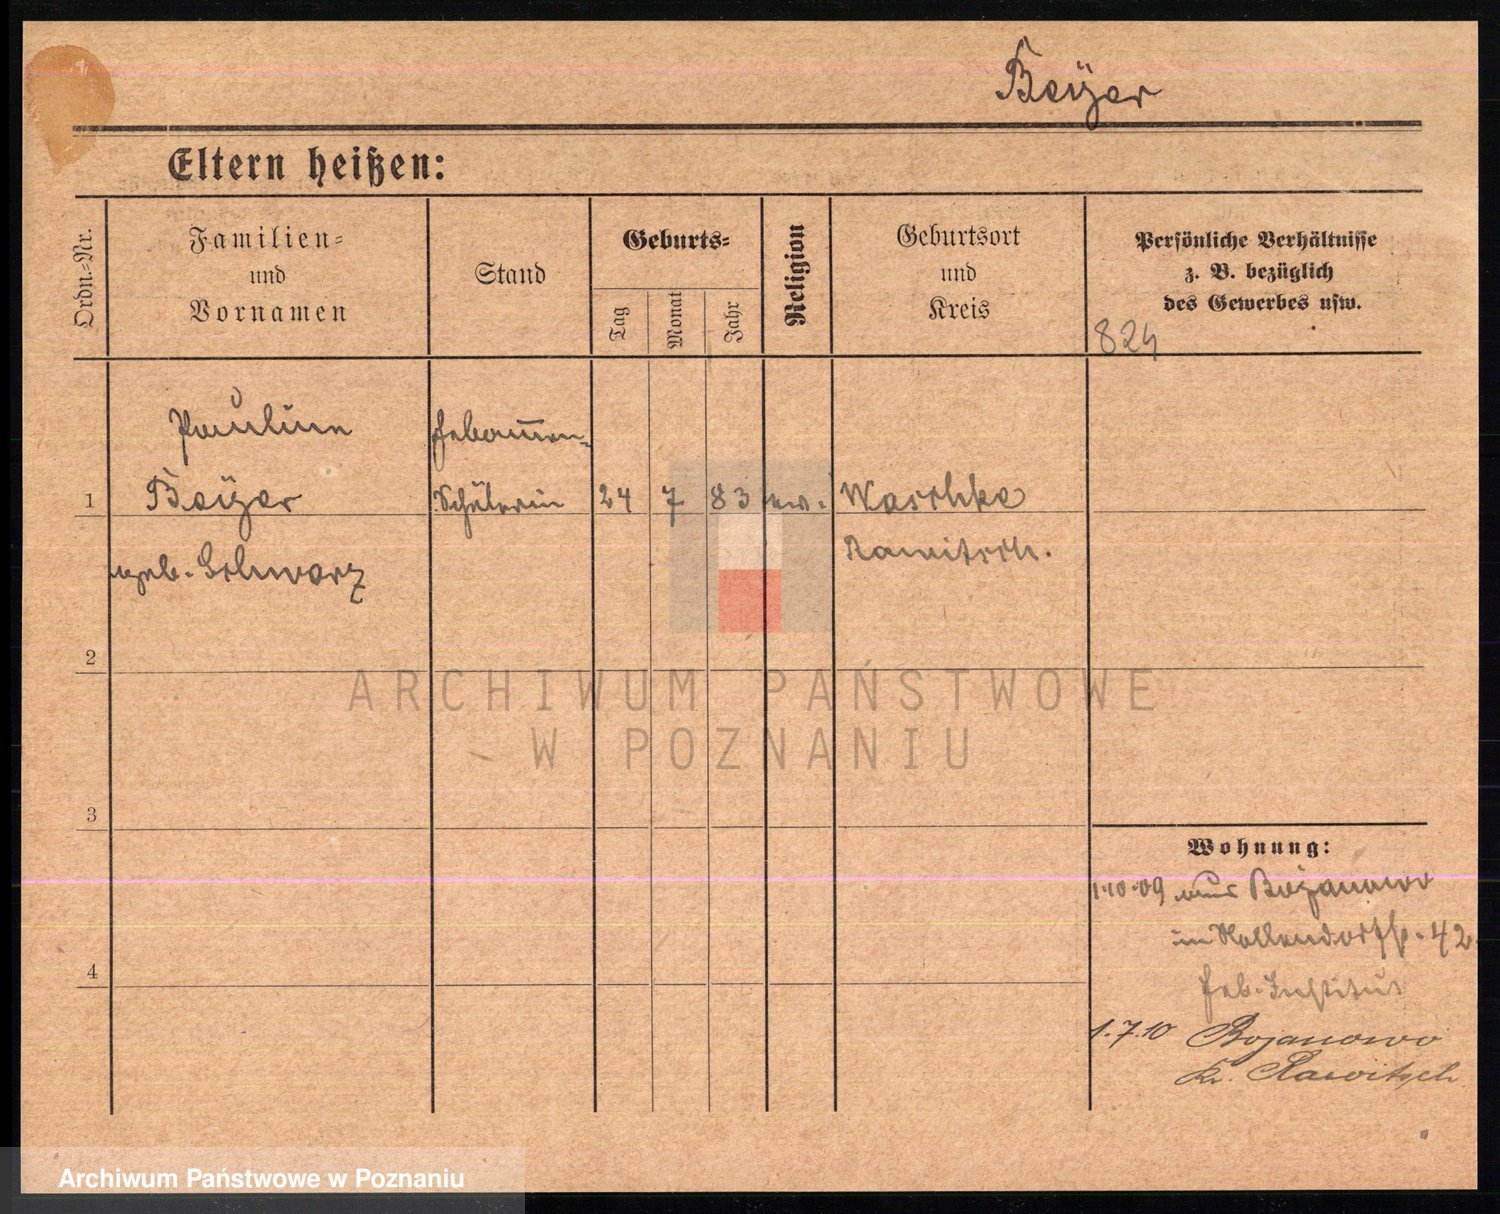 Beÿer
Eltern heißen:
Ordn.=Nr.
Familien=
und
Vornamen
Stand
Geburts=
Tag
Monat
Jahr
Religion
Geburtsort
und
Kreis
Persönliche Verhältnisse
z. B. bezüglich
des Gewerbes usw.
824
Paulina
Hebammen-
1 Beÿer Schülerin 24 7 83 ev. Waschke
geb. Schwarz Rawitsch.
2
3
Wohnung:
1.10.09 aus Bojanowo
in Hollendorfstr. 42
4
Heb. Institut
1.7.10 Bojanowo
Kr. Rawitsch
ARCHIWUM PAŃSTWOWE
W POZNANIU
Archiwum Państwowe w Poznaniu